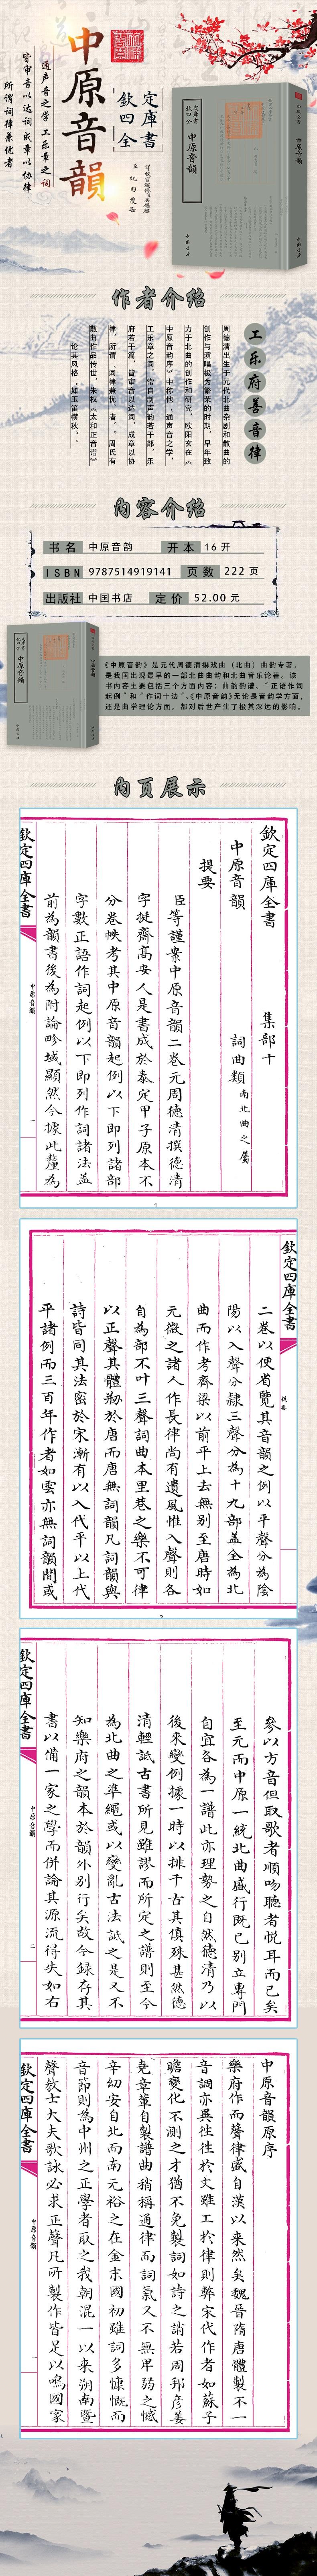 中原音韻
通声音之学 工乐章之词
皆审音以达词 成章以协律
所谓词律兼优者
欽定四庫全書
中原音韻
中國書店
作者介绍
工乐府善音律
周德清出生于元代北曲杂剧和散曲的
创作与演唱极为繁荣的时期，早年致
力于北曲的创作和研究，欧阳玄在《
中原音韵序》中称他“通声音之学，
工乐章之词，常自制声韵若干部，乐
府若干篇，皆审音以达词，成章以协
律，所谓‘词律兼优’者。”周氏有
散曲作品传世，朱权《太和正音谱》
论其风格，“如玉笛横秋。”
内容介绍
书名 中原音韵 开本 16开
ISBN 9787514919141 页数 222页
出版社 中国书店 定价 52.00元
《中原音韵》是元代周德清撰戏曲（北曲）曲韵专著，
是我国出现最早的一部北曲曲韵和北曲音乐论著。该
书内容主要包括三个方面内容：曲韵韵谱、“正语作词
起例”和“作词十法”。《中原音韵》无论是音韵学方面，
还是曲学理论方面，都对后世产生了极其深远的影响。
内页展示
欽定四庫全書 集部十
中原音韻 詞曲類南北曲之屬
提要
臣等謹案中原音韻二卷元周德清撰德清
字挺齋高安人是書成於泰定甲子原本不
分卷帙考其中原音韻起例以下即列諸部
字數正語作詞起例以下即列作詞諸法蓋
前為韻書後為附論畛域顯然今據此釐為
欽定四庫全書
中原音韻
一
1
欽定四庫全書
提要
二卷以便省覽其音韻之例以平聲分為陰
陽以入聲分隸三聲分為十九部蓋全為北
曲而作考齊梁以前平上去無别至唐時如
元微之諸人作長律尚有遺風惟入聲則各
自為部不叶三聲詞曲本里巷之樂不可律
以正聲其體剏於唐而唐無詞韻凡詞韻與
詩皆同其法密於宋漸有以入代平以上代
平諸例而三百年作者如雲亦無詞韻間或
2
參以方音但取歌者順吻聽者悦耳而已矣
至元而中原一統北曲盛行既已别立專門
自宜各為一譜此亦理勢之自然德清乃以
後來變例據一時以排千古其傎殊甚然德
清輕詆古書所見雖謬而所定之譜則至今
為北曲之準繩或以變亂古法詆之是又不
知樂府之韻本於韻外别行矣故今錄存其
書以備一家之學而併論其源流得失如右
欽定四庫全書
中原音韻
二
中原音韻原序
樂府作而聲律盛自漢以來然矣魏晉隋唐體製不一
音調亦異徃徃於文雖工於律則弊宋代作者如蘇子
瞻變化不測之才猶不免製詞如詩之誚若周邦彦姜
堯章輩自製譜曲稍稱通律而詞氣又不無卑弱之憾
辛幼安自北而南元裕之在金末國初雖詞多慷慨而
音節則為中州之正學者取之我朝混一以來朔南暨
聲教士大夫歌詠必求正聲凡所製作皆足以鳴國家
欽定四庫全書
中原音韻